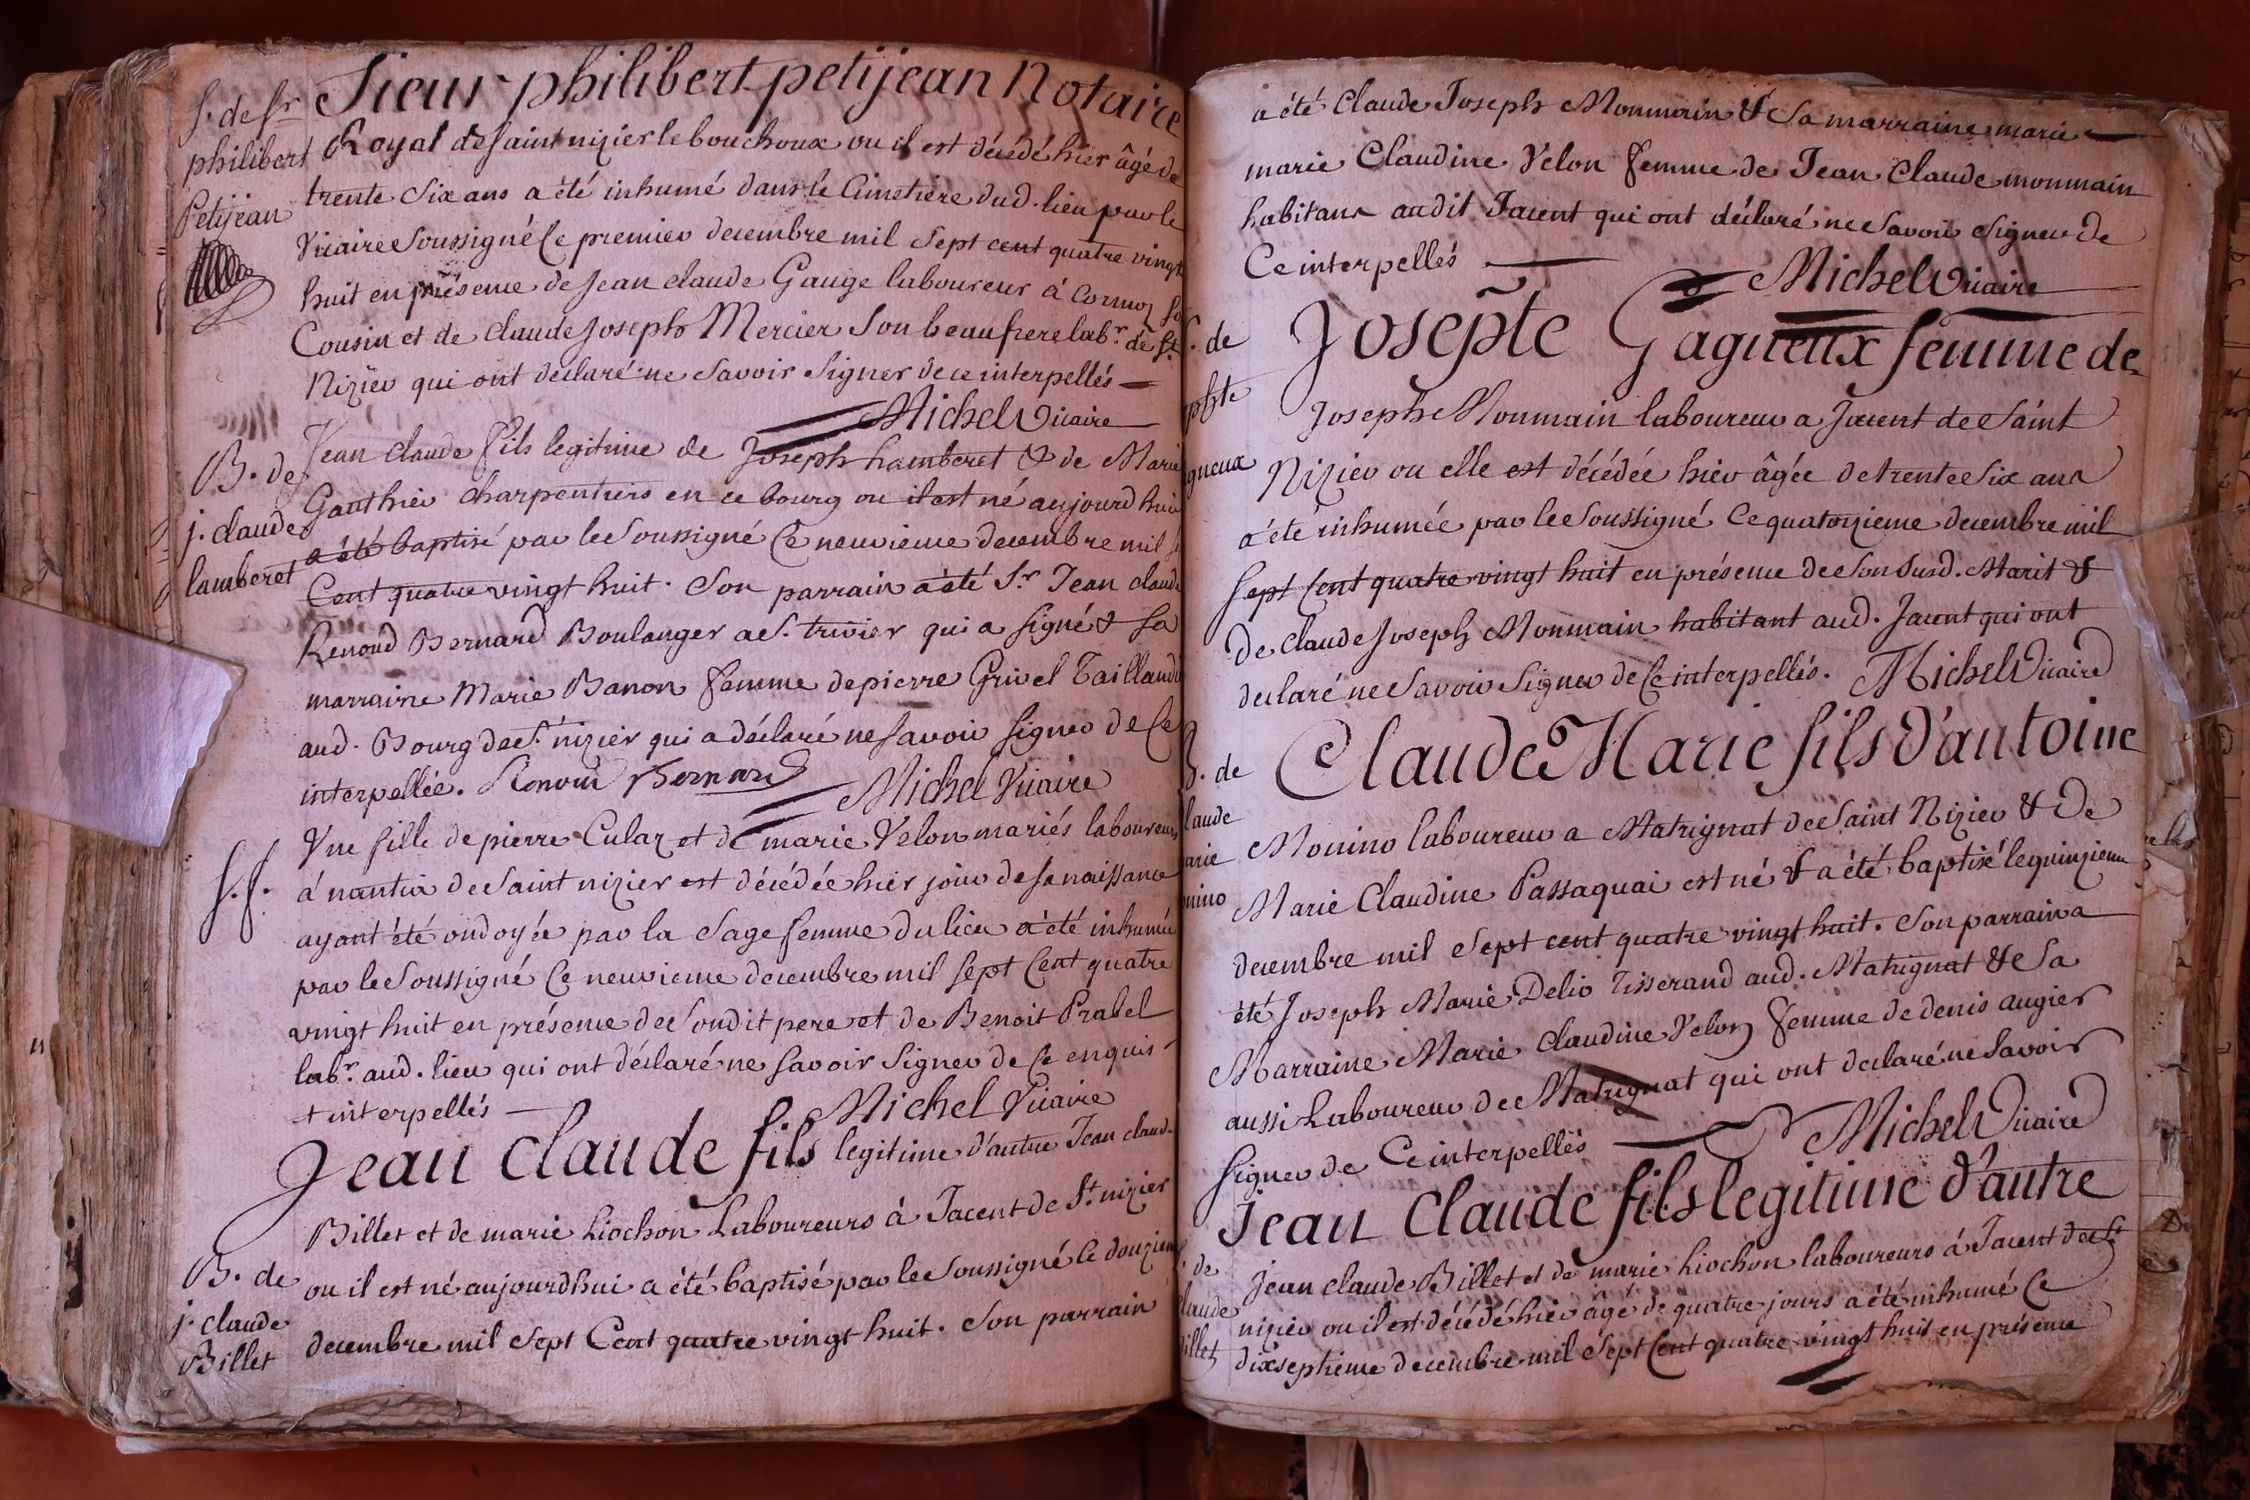 S. de Sr
philibert
Petijean
Sieur philibert petijean Notaire
Royal de saint nizier le bouchoux ou il est décédé hier âgé de
trente Six ans a été inhumé dans le Cimetiere dud. lieu par le
Vicaire Soussigné Ce premier decembre mil Sept cent quatre vingt
huit en présence de Jean claude Gauge laboureur à Cormoz So
Cousin et de Claude Joseph Mercier Son beaufrere labr. de St.
Nizier qui ont déclaré ne Savoir Signer de ce interpellés
Michel Vicaire
B. de
j. claude
lamberet
Jean claude fils legitime de Joseph hamberet & de Marie
Gauthier charpentiers en ce bourg ou il est né aujourdhui
a été baptisé par le Soussigné Ce neuvieme decembre mil
Cent quatre vingt huit. Son parrain a été Sr. Jean claude
Renoud Bernard Boulanger a St. trivier qui a Signé & Sa
marraine Marie Banon femme de pierre Grivel Taillandi
aud. Bourg de St. nizier qui a déclaré ne Savoir Signer de Ce
interpellée. Renoud Bernard Michel Vicaire
S. f.
Une fille de pierre Culaz et de marie Velon mariés laboureurs
á nantia de Saint nizier est décédée hier jour de sa naissance
ayant été ondoyée par la Sage femme du lieu a été inhumée
par le Soussigné Ce neuvieme decembre mil Sept Cent quatre
vingt huit en présence de Son dit pere et de Benoit Prabel
labr. aud. lieu qui ont déclaré ne Savoir Signer de Ce enquis
+ interpellés Michel Vicaire
B. de
j. claude
Billet
Jean Claude fils legitime d'autre Jean claud-
Billet et de marie Liochon Laboureurs à Jacent de St. nizier
ou il est né aujourdhui a été baptisé par le Soussigné Ce douzieme
decembre mil Sept Cent quatre vingt huit. Son parrain
a été Claude Joseph Monmain & Sa marraine marie
marie Claudine Velon femme de Jean Claude monmain
habitans audit Jacent qui ont déclaré ne Savoir Signer de
Ce interpellés Michel Vicaire
S. de
josphte
gueux
Josephte Gagneux femme de
Joseph Monmain laboureur a Jacent de Saint
Nizier ou elle est décédée hier âgée de trente Six ans
a été inhumée par le Soussigné Ce quatorzieme decembre mil
Sept Cent quatre vingt huit en présence de Son Susd. Marit &
de Claude Joseph Monmain habitant aud. Jacent qui ont
declaré ne Savoir Signer de Ce interpellés. Michel Vicaire
B. de
laude
arie
nino
Claude Marie fils d'antoine
Monino laboureur a Matrignat de Saint Nizier & de
Marie Claudine Passaquai est né & a été baptisé le quinzieme
decembre mil Sept cent quatre vingt huit. Son parrain a
été Joseph Marie Delio Tisserand aud. Matrignat & Sa
Marraine Marie Claudine Velon femme de denis augier
aussi Laboureur de Matrignat qui ont declaré ne Savoir
Signer de Ce interpellés Michel Vicaire
de
laude
illet
Jean Claude fils legitime d'autre
Jean claude Billet et de marie Liochon laboureurs á Jacent de St.
nizier ou il est décédé hier âgé de quatre jours a été inhumé Ce
dixseptieme decembre mil Sept Cent quatre vingt huit en présence